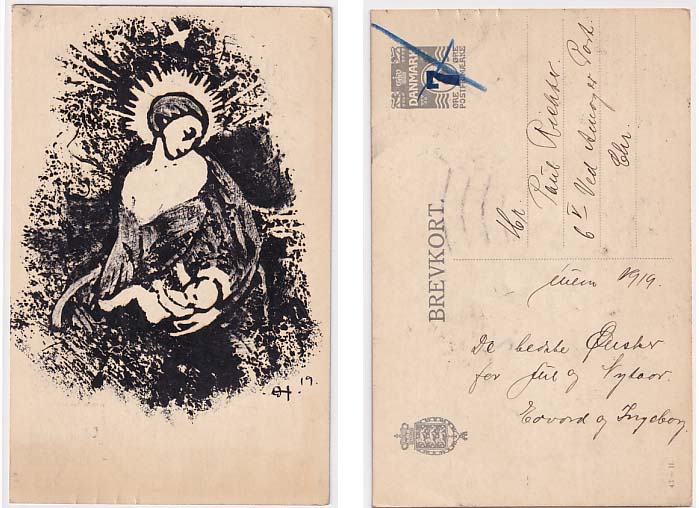 19.
DANMARK
7
ØRE ØRE
POSTFRIMÆRKE
BREVKORT.
Hr.
Paul Richter.
6 V Ved Amager Port.
Chr.
Julen 1919.
De bedste Ønsker
for Jul og Nytaar.
Edvard og Ingeborg.
43 - H